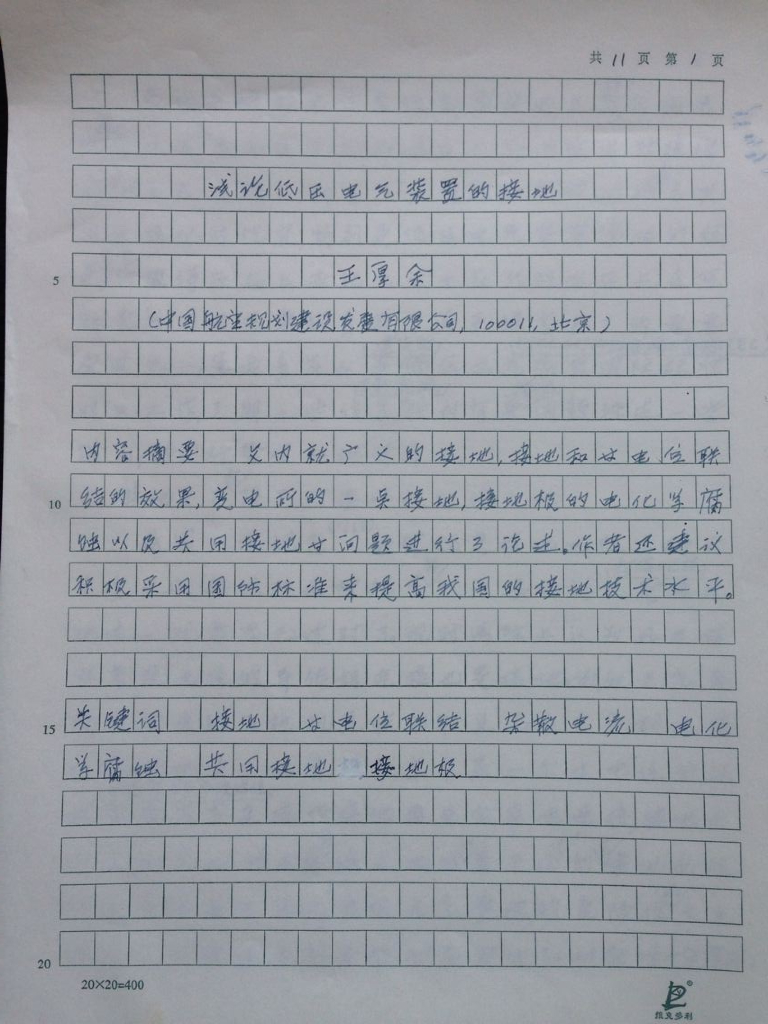 共 11 页 第 1 页
浅说低压电气装置的接地
5
王厚余
(中国航空规划建设发展有限公司, 100011, 北京)
内容摘要 文内就广义的接地,接地和艹电位联
10 结的效果,变电所的一点接地,接地极的电化学腐
蚀以及共用接地艹问题进行了论述。作者还建议
积极采用国际标准来提高我国的接地技术水平。
15 关键词 接地 艹电位联结 杂散电流 电化
学腐蚀 共用接地 接地极
20
20×20=400